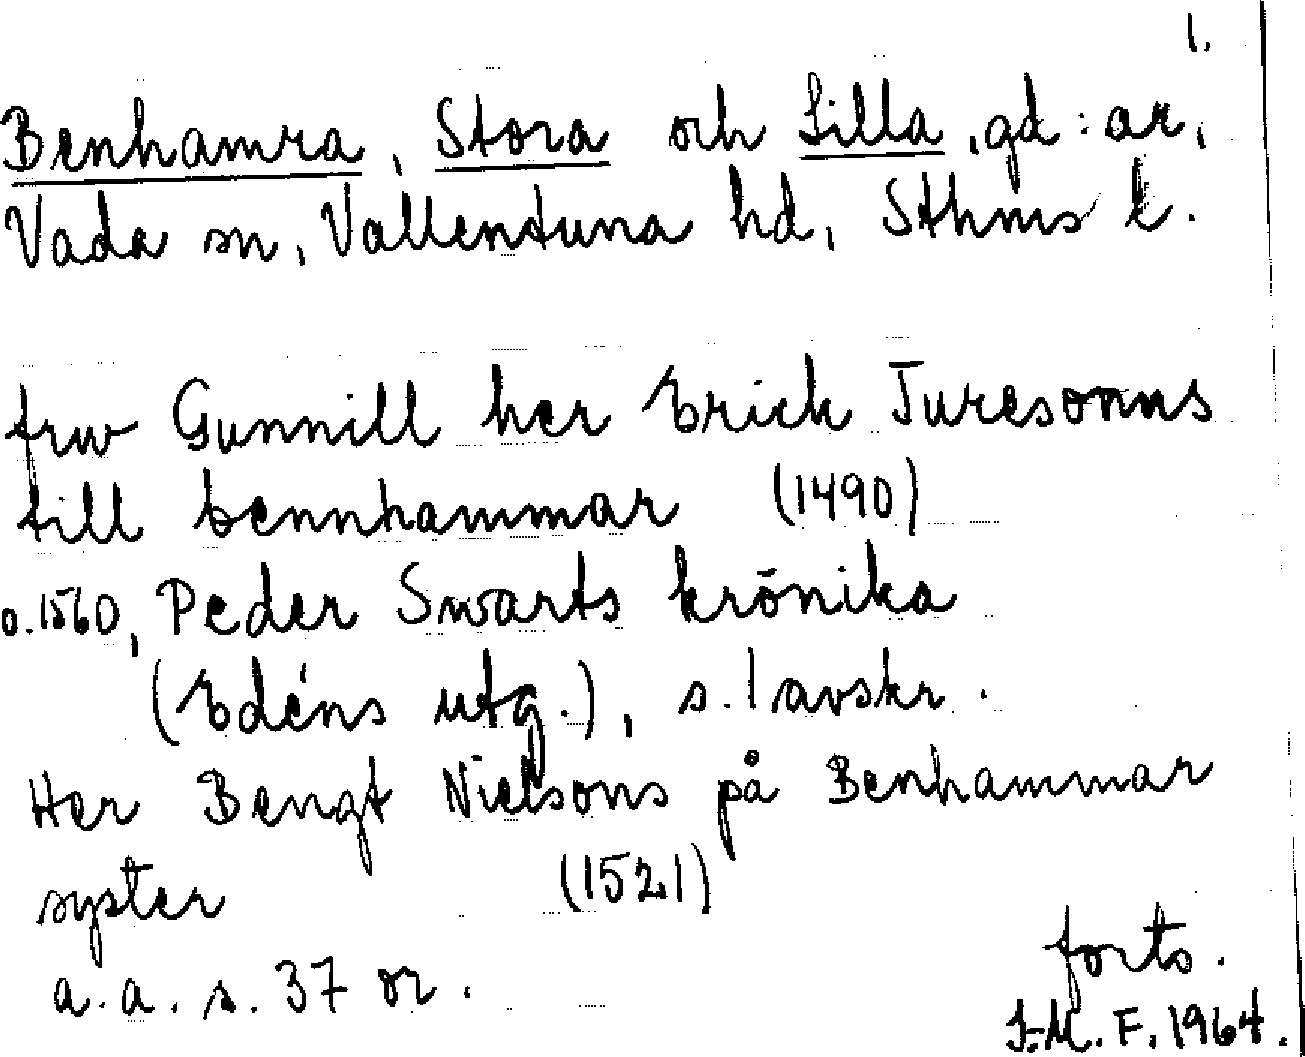 1.
Benhamra, Stora och Lilla, gd:ar,
Vada sn, Vallentuna hd, Sthms l.
frw Gunnill her Erick Turesonns
till bennhammar (1490)
o. 1560, Peder Swarts krönika
(Edéns utg.), s. 1 avskr.
Her Bengt Nielsons på Benhammar
syster (1521)
a.a. s. 37 or.
forts.
I-M. F. 1964.